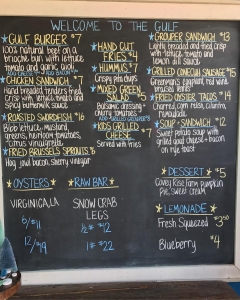 WELCOME TO THE GULF
GULF BURGER $7
100% natural beef on a
brioche bun with lettuce
tomato and garlic aioli
ADD CHEESE ADD BACON
CHICKEN SANDWICH
Hand breaded tenders fried
crisp with lettuce tomato and
spicy buttermilk sauce
ROASTED SWORDFISH $16
Bibb lettuce, mustard
greens, heirloom tomatoes,
citrus vinaigrette
FRIED BRUSSELS SPROUTS $6
Hog jowl bacon, sherry vinegar
HAND CUT
FRIES $4
HUMMUS $7
Crispy pita chips
MIXED GREEN
SALAD $5
Balsamic dressing
cherry tomatoes
ADD GRILLED GROUPER
KIDS GRILLED
CHEESE $7
Served with fries
GROUPER SANDWICH $13
Lightly breaded and fried
crisp with lettuce tomato and
lemon dill sauce
GRILLED CONECUH SAUSAGE $15
FRIED OYSTER TACOS $14
Charred corn relish, cilantro,
SOUP + SANDWICH $12
Sweet potato soup with
grilled goat cheese + bacon
on rye toast
DESSERT $5
Covey Rise Farm pumpkin
pie, sweet cream
LEMONADE
Fresh Squeezed $3.50
Blueberry $4
OYSTERS
VIRGINICA LA
6/$11
12/$19
RAW BAR
SNOW CRAB
LEGS
1/2# $12
1# $22